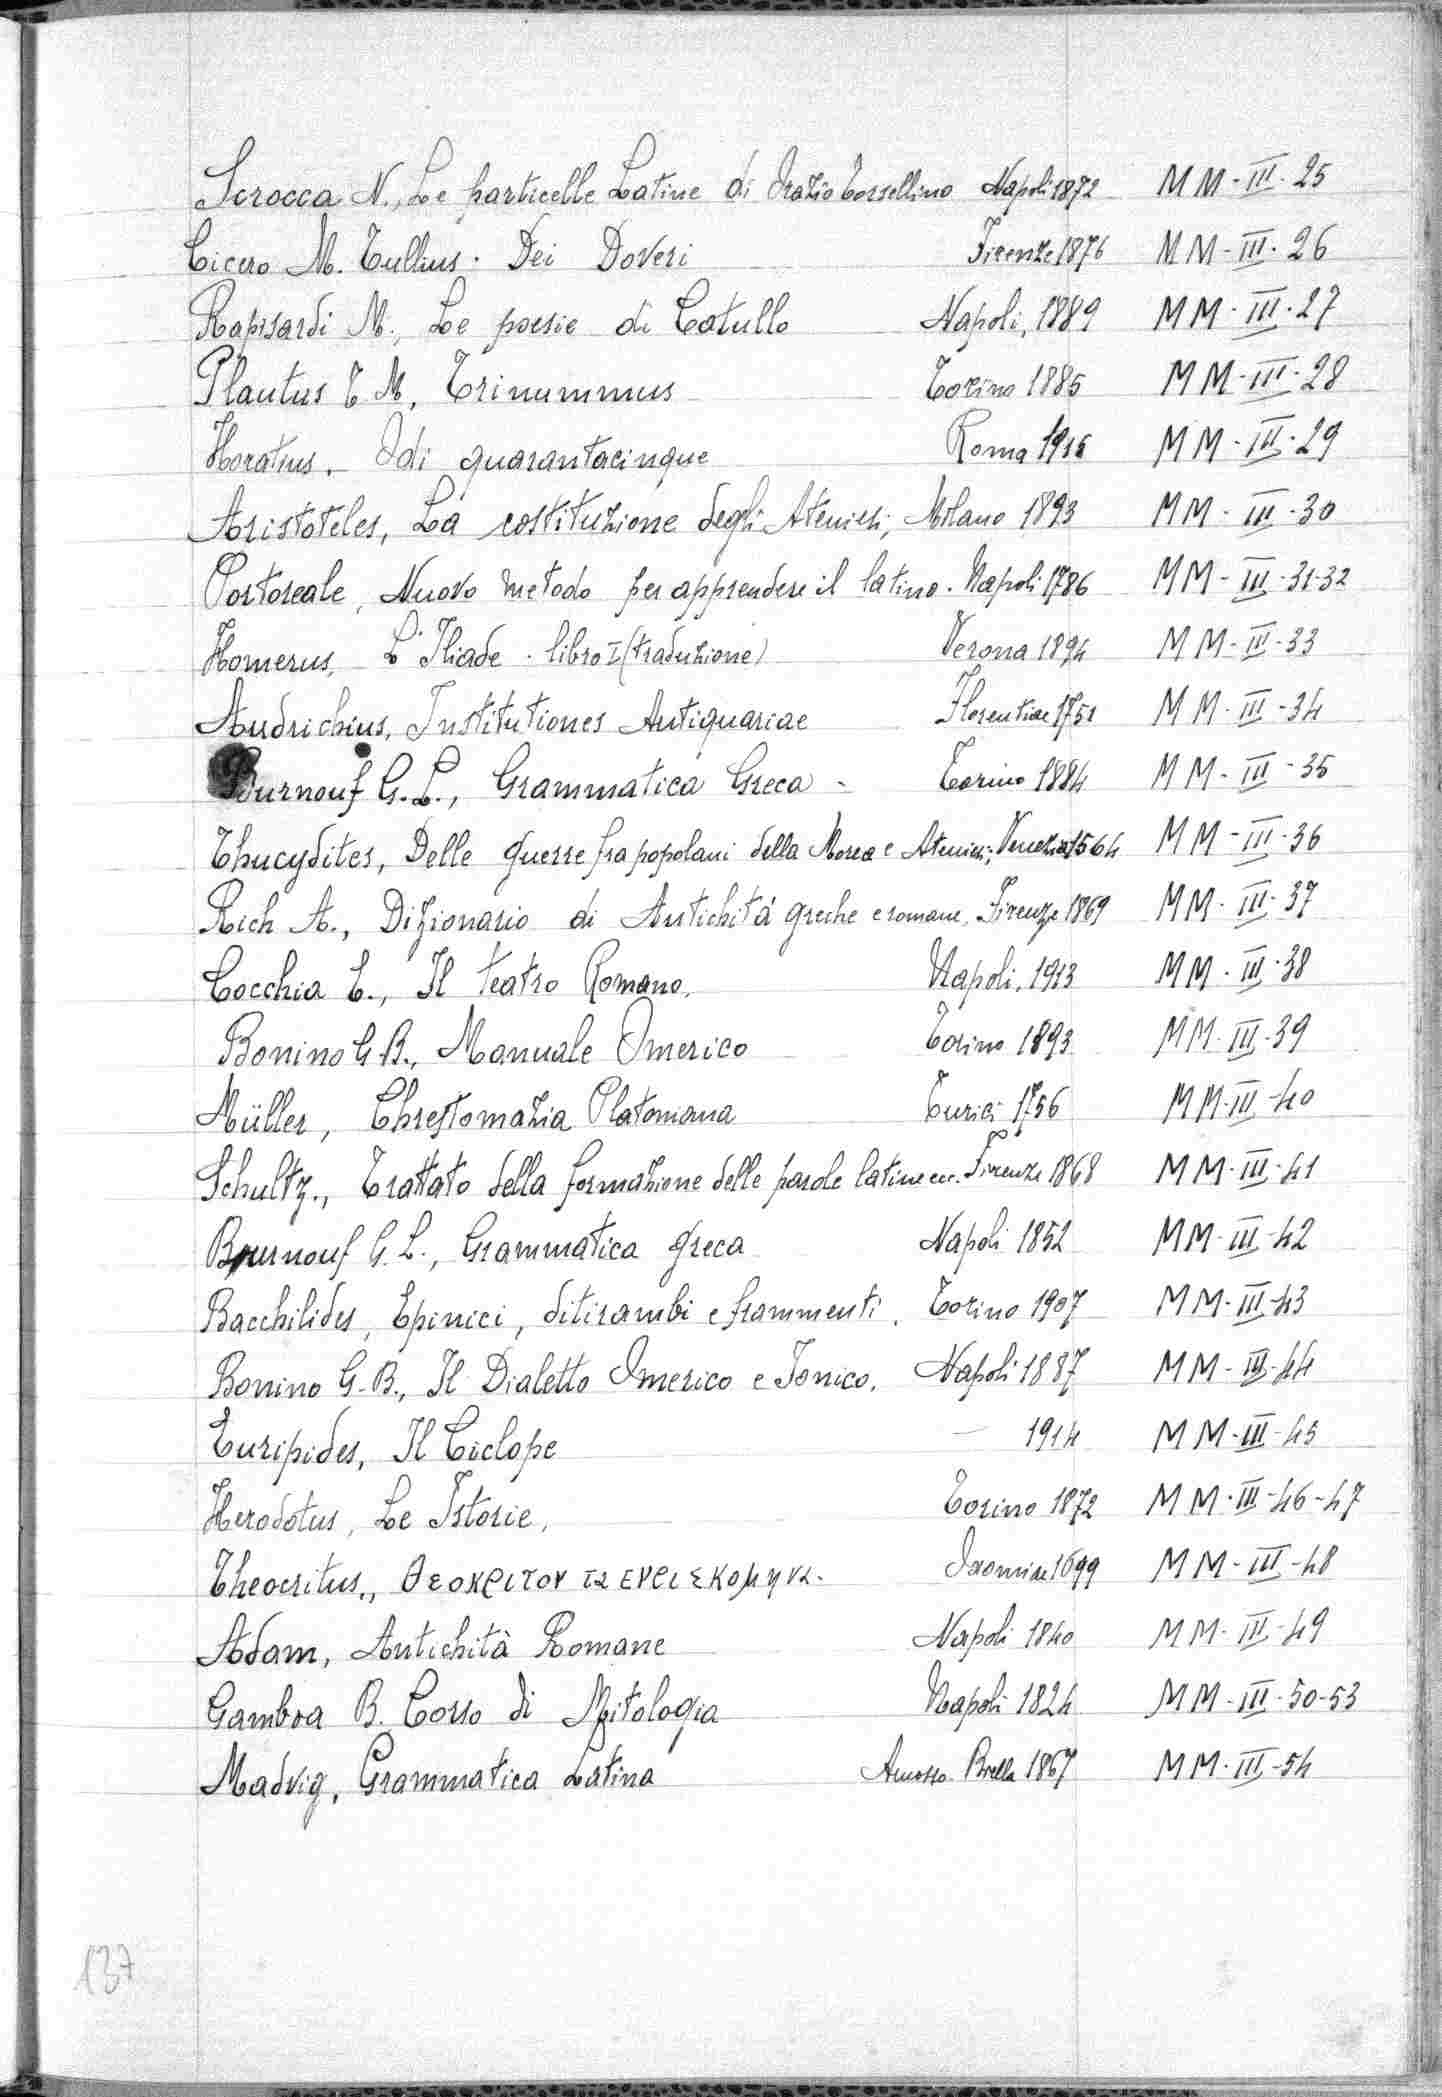 Scrocca N., Le particelle Latine di Orazio Torsellino Napoli 1872 MM-III-25
Cicero M. Tullius. Dei Doveri Firenze 1876 MM-III-26
Rapisardi M., Le poesie di Catullo Napoli, 1889 MM-III-27
Plautus T M, Trinummus Torino 1885 MM-III-28
Horatius. Odi quarantacinque Roma MM-III-29
Aristoteles, La costituzione degli Ateniesi, Milano 1893 MM-III-30
Portoreale, Nuovo metodo per apprendere il latino. Napoli 1786 MM-III-31-32
Homerus, L'Iliade. libro I (traduzione) Verona 1894 MM-III-33
Audrichius, Institutiones Antiquariae Florentiae 1751 MM-III-34
Burnouf G.L., Grammatica Greca - Torino 1884 MM-III-35
Thucydites, Delle guerre fra popolani della Morea e Ateniesi; Venezia 1564 MM-III-36
Rich A., Dizionario di Antichità greche e romane, Firenze 1869 MM-III-37
Cocchia E., Il teatro Romano. Napoli, 1913 MM-III-38
Bonino G.B., Manuale Omerico Torino 1893 MM-III-39
Müller, Chrestomazia Platoniana Turici 1756 MM-III-40
Schultz., Trattato della formazione delle parole latine ecc. Firenze 1868 MM-III-41
Burnouf G.L., Grammatica greca Napoli 1852 MM-III-42
Bacchilides, Epinici, ditirambi e frammenti. Torino 1907 MM-III-43
Bonino G.B., Il Dialetto Omerico e Ionico. Napoli 1887 MM-III-44
Euripides, Il Ciclope - 1914 MM-III-45
Herodotus, Le Istorie, Torino 1872 MM-III-46-47
Theocritus., Θεοκριτου τα ευρισκομηνα. 1699 MM-III-48
Adam, Antichità Romane Napoli 1840 MM-III-49
Gamboa B. Corso di Mitologia Napoli 1824 MM-III-50-53
Madvig, Grammatica Latina 1867 MM-III-54
137